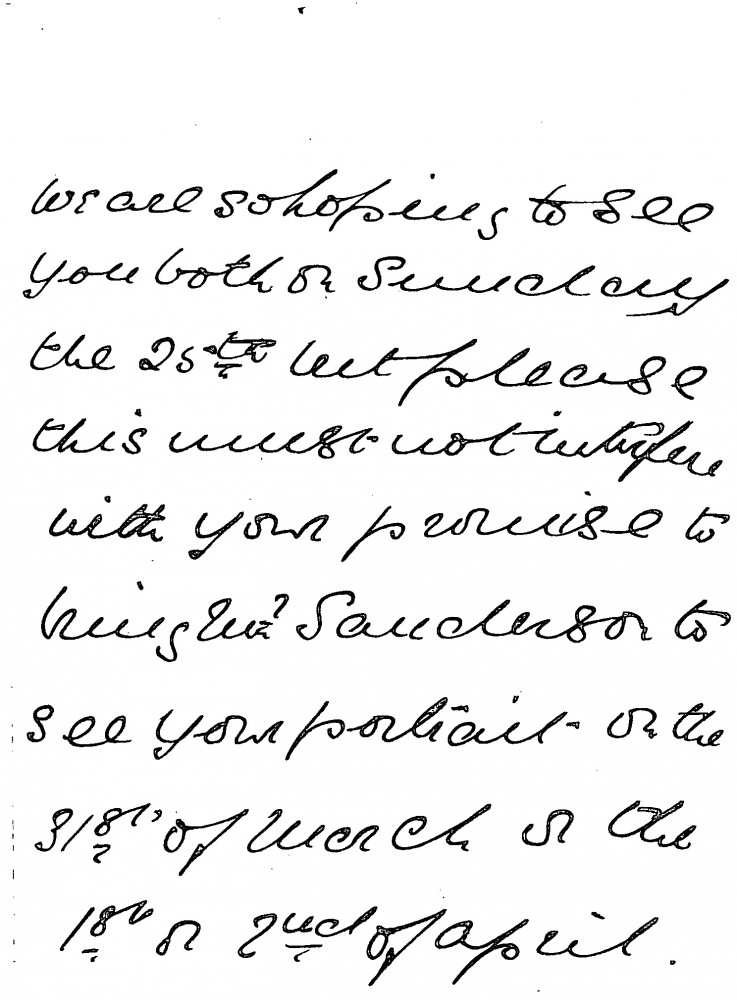 we are so hoping to see
you both on Sunday
the 25th but please
this must not interfere
with your promise to
bring Mr Sanderson to
see your portrait - on the
31st of March or the
1st or 2nd of April.